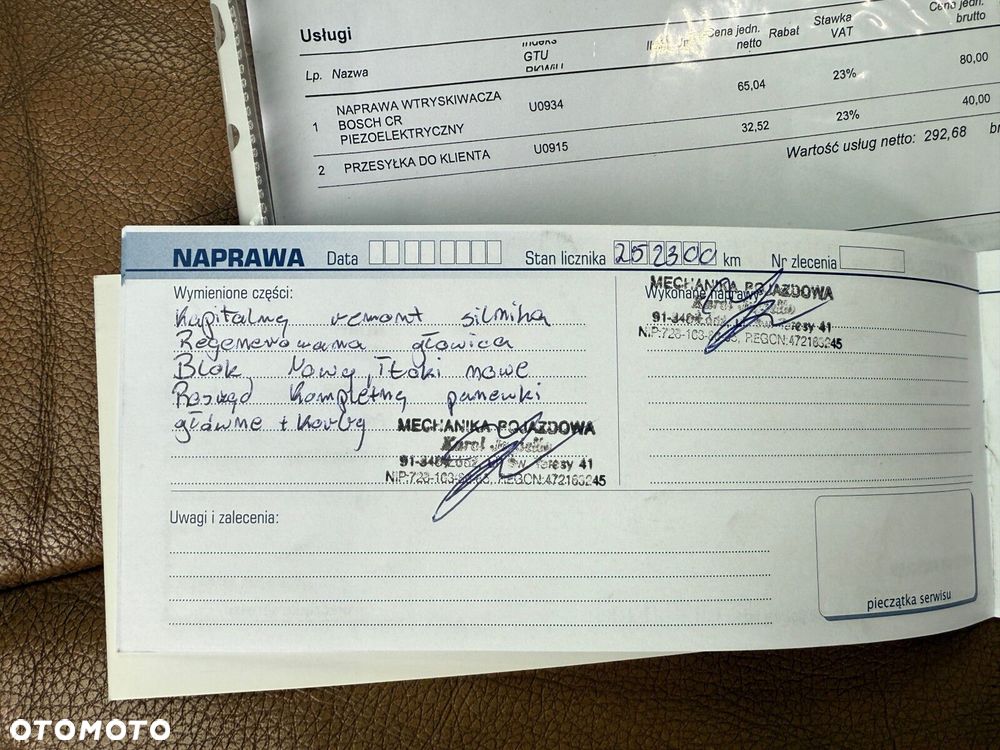 Usługi
Lp. Nazwa
GTU
PKWiU
Cena jedn. netto
Rabat
Stawka VAT
Cena jedn. brutto
1 NAPRAWA WTRYSKIWACZA BOSCH CR PIEZOELEKTRYCZNY U0934 65,04 23% 80,00
2 PRZESYŁKA DO KLIENTA U0915 32,52 23% 40,00
Wartość usług netto: 292,68
NAPRAWA Data Stan licznika 252300 km Nr zlecenia
Wymienione części:
Kapitalny remont silnika
Regenerowana głowica
Blok Nowy, Tłoki nowe
Rozrząd kompletny panewki
główne + korby
MECHANIKA POJAZDOWA
Karol
Teresy 41
REGON:472163245
Wykonane naprawy:
MECHANIKA POJAZDOWA
Teresy 41
REGON:472163245
Uwagi i zalecenia:
pieczątka serwisu
OTOMOTO